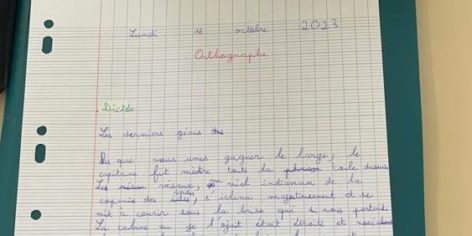 Lundi 18 octobre 2023
Orthographe
Dictée
Les derniers géans
que nous umes gagner le large, le
capitaine fit mettre toute la toile dessus
Les vesaux, vieil indiaman de la
capmia des indes, s'clina majestueusement et se
mit a courir sous la brise qui nous portait.
La cabine ou je l'ojait était étroite et